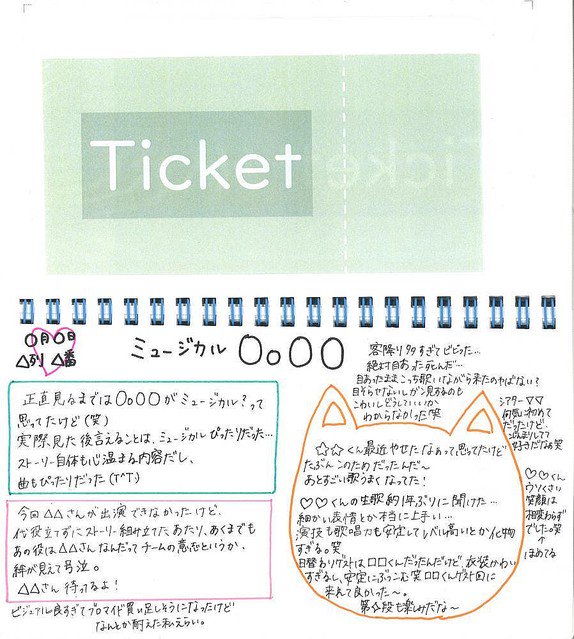 Ticket
〇月〇日
△列 △番
ミュージカル 〇。〇〇
正直見るまでは〇。〇〇がミュージカル?って
思ってたけど(笑)
実際見た後言えることは、ミュージカルぴったりだった…
ストーリー自体も心温まる内容だし、
曲もぴったりだった(T^T)
今回△△さんが出演できなかったけど、
代役立てずにストーリー組み立てたあたり、あくまでも
あの役は△△さんなんだってチームの意志というか、
絆が見えて号泣。
△△さん待ってるよ!
ビジュアル良すぎてブロマイド買い足しそうになったけど
なんとか耐えた私えらい。
客降り多すぎてビビった…
絶対目あった死んだ…
目あったままこっち歌いながら来たのやばない?
目そらせないしガン見するのも
こわいしどうしていいか
わからなかった笑
シアター▽▽
何気に初めて
だったけど、
こぢんまりしてて
好きだなぁ笑
☆☆くん最近やせたなぁって思ってたけど
たぶんこのためだったんだ~
あとすごい歌うまくなってた!
♡♡くんの生歌約1年ぶりに聞けた…
細かい表情とか本当に上手い…
演技も歌唱力も安定してレベル高いとか化物
すぎる。笑
日替わりゲストは口口くんだったんだけど、衣装かわい
すぎるし、安定にぶっこむ笑 口口くんゲスト回に
来れて良かった~。
第☆段も楽しみだな~
♡♡くん
ウソくさい
笑顔は
相変わらず
でした笑
↑
ほめてる